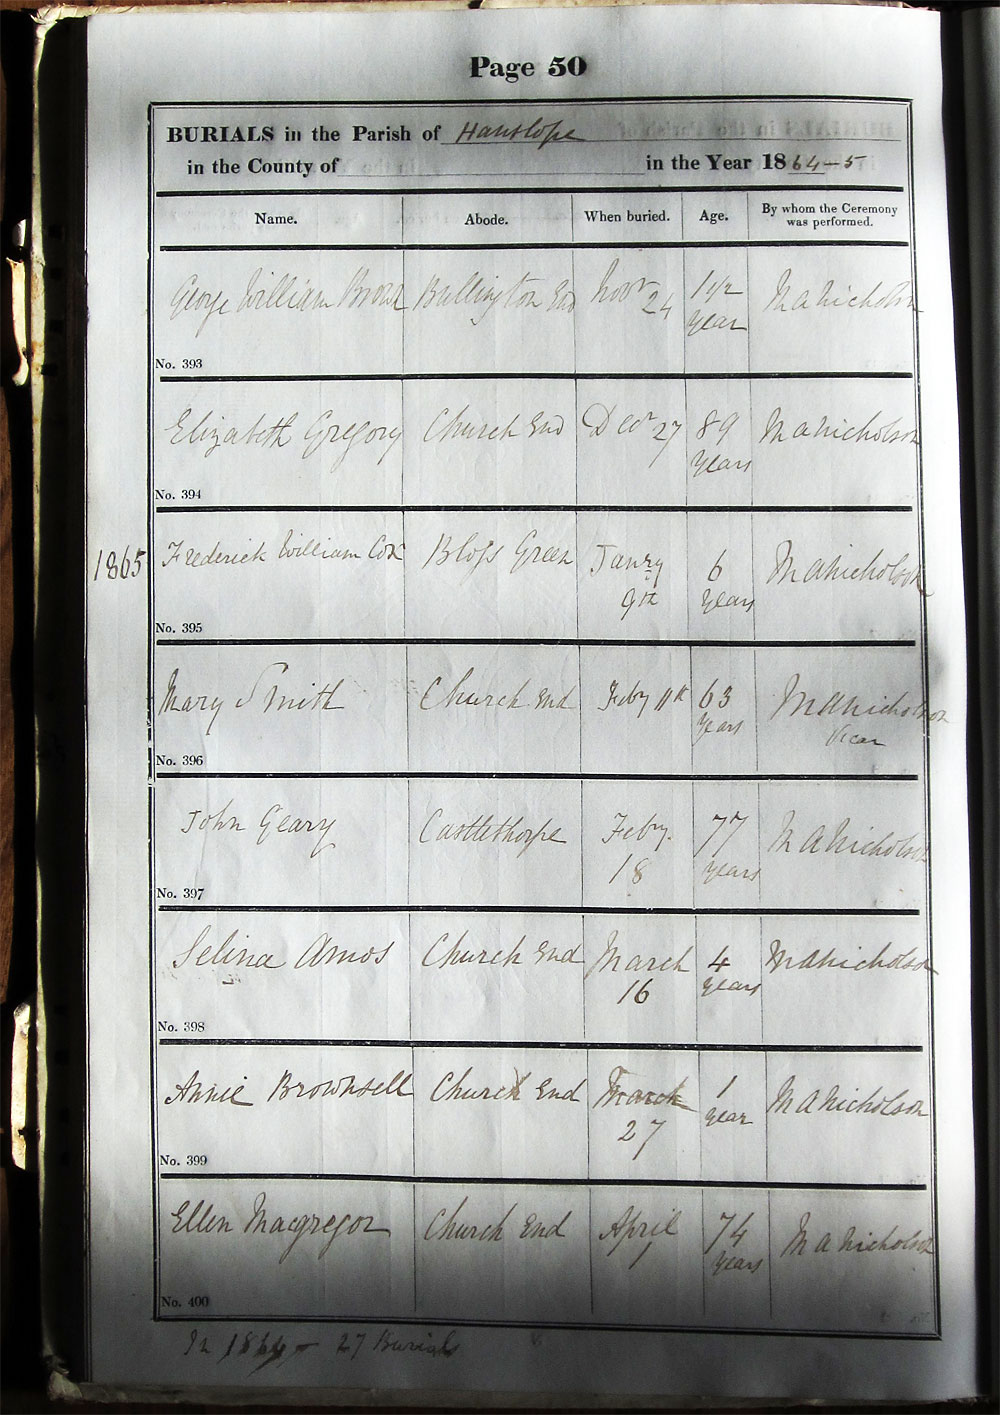 Page 50
BURIALS in the Parish of Hanslope
in the County of in the Year 1864-5
Name. Abode. When buried. Age. By whom the Ceremony was performed.
George William Brown Bullington End Novr 24 1 1/2 year M A Nicholson
No. 393
Elizabeth Gregory Church End Decr 27 89 years M A Nicholson
No. 394
1865 Frederick William Cox Bloss Green Janry 9th 6 years M A Nicholson
No. 395
Mary Smith Church End Feby 11th 63 years M A Nicholson Vicar
No. 396
John Geary Castlethorpe Feby. 18 77 years M A Nicholson
No. 397
Selina Amos Church End March 16 4 years M A Nicholson
No. 398
Annie Brownsell Church End March 27 1 year M A Nicholson
No. 399
Ellen Macgregor Church End April 1 74 years M A Nicholson
No. 400
In 1864 - 27 Burials